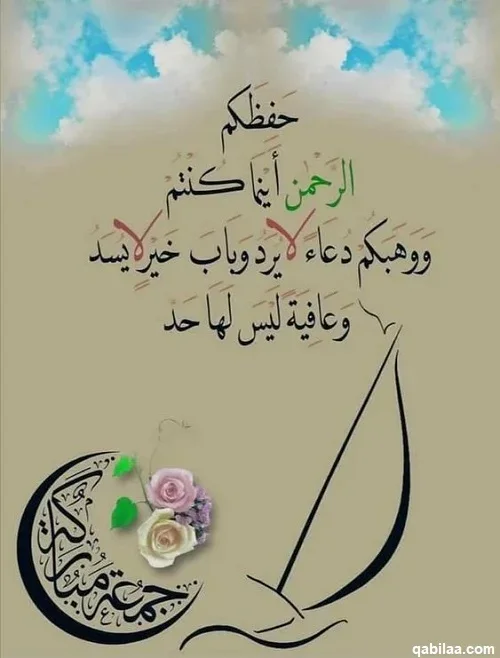 حَفِظَكم
الرَحْمٰن أَيْنَمَا كُنْتُمْ
وَوَهَبَكُمْ دُعَاءً لَا يُرَدُ وَبَابَ خَيْرٍ لَا يُسَدُ
وَعَافِيَةً لَيْسَ لَهَا حَدْ
جمعة مباركة
qabilaa.com